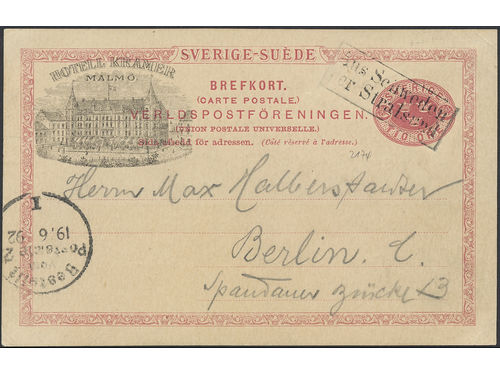 SVERIGE-SUÈDE
HOTELL KRAMER
MALMÖ
BREFKORT.
(CARTE POSTALE.)
VERLDSPOSTFÖRENINGEN.
(UNION POSTALE UNIVERSELLE.)
Sidan för adressen. (Côté réservé à l'adresse.)
Aus Schweden
Stralsund
SVERIGE
TIO ÖRE
2174
Herrn Max Halberstaedter
Berlin. C.
Spandauer Brücke
19.6 92